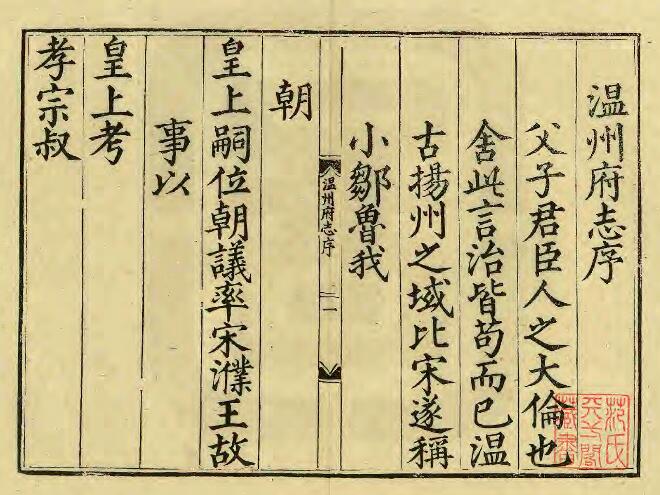 温州府志序
父子君臣人之大倫也
舍此言治皆苟而已温
古揚州之域比宋遂稱
小鄒魯我
温州府志序
一
朝
皇上嗣位朝議率宋濮王故
事以
皇上考
孝宗叔
范氏天一閣藏書